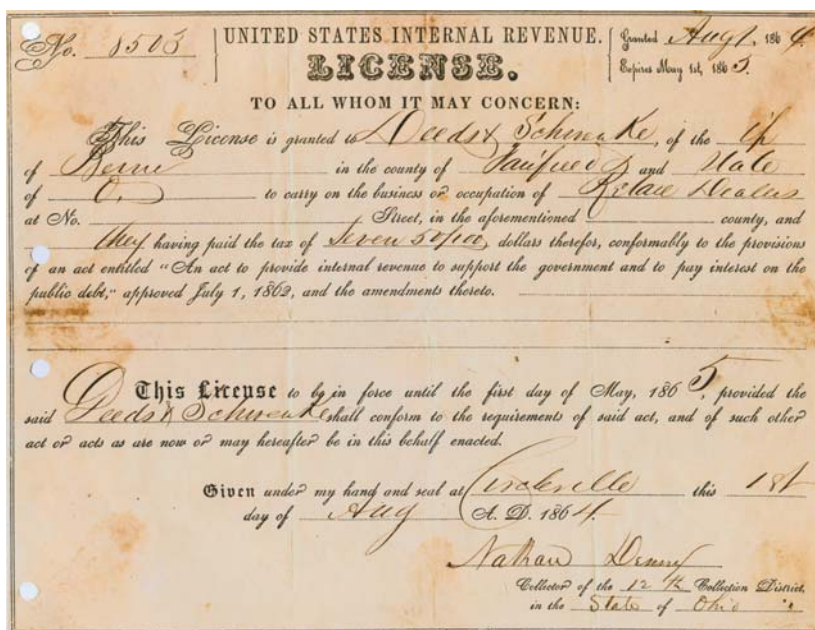 No. 8503 UNITED STATES INTERNAL REVENUE. Granted Aug 1. 1864.
LICENSE. Expires May 1st, 1865.
TO ALL WHOM IT MAY CONCERN:
This License is granted to Deeds & Schwenke, of the
of Berne in the county of Fairfield and State
of O. to carry on the business or occupation of Retail Dealers
at No. Street, in the aforementioned county, and
they having paid the tax of Seven 50/100 dollars therefor, conformably to the provisions
of an act entitled "An act to provide internal revenue to support the government and to pay interest on the
public debt," approved July 1, 1862, and the amendments thereto.
This License to be in force until the first day of May, 1865, provided the
said Deeds & Schwenke shall conform to the requirements of said act, and of such other
act or acts as are now or may hereafter be in this behalf enacted.
Given under my hand and seal at Circleville this 1st
day of Aug A. D. 1864.
Nathan Denny
Collector of the 12th Collection District,
in the State of Ohio